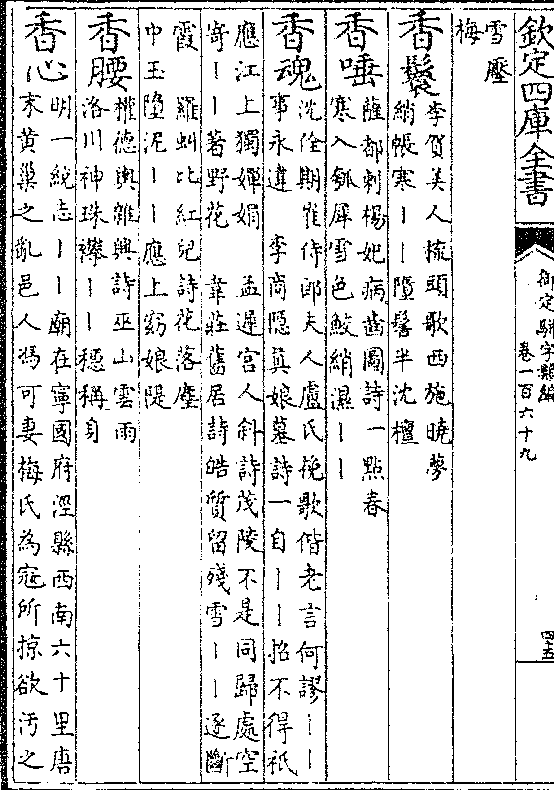 欽定四庫全書
御定騈字類編
卷一百六十九
四五
雪壓
梅
香鬟
李賀美人梳頭歌西施曉夢
綃帳寒丨丨墮髻半沈檀
香唾
薩都剌楊妃病齒圖詩一點春
寒入瓠犀雪色鮫綃濕丨丨
香魂
沈佺期崔侍郎夫人盧氏挽歌偕老言何謬丨丨
事永違　李商隱真娘墓詩一自丨丨招不得秖
應江上獨嬋娟　孟遲宮人斜詩茂陵不是同歸處空
寄丨丨著野花　韋莊舊居詩皓質留殘雪丨丨逐斷
霞　羅虯比紅兒詩花落塵
中玉墮泥丨丨應上窈娘隄
香腰
權德輿雜興詩巫山雲雨
洛川神珠襻丨丨穩稱身
香心
明一統志丨丨廟在寧國府涇縣西南六十里唐
末黄巢之亂邑人馮可妻梅氏為寇所掠欲汚之